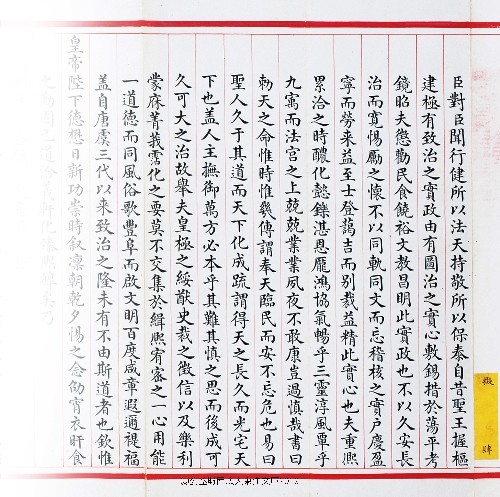 臣對臣聞行健所以法天持敬所以保泰自昔聖王握樞
建極有致治之實政由有圖治之實心敷錫措於蕩平考
鏡昭夫懲勸民食饒裕文教昌明此實政也不以久安長
治而寬惕勵之懷不以同軌同文而忘稽核之實戶慶盈
寧而勞來益至士登譪吉而別裁益精此實心也夫重熙
累洽之時醲化懿鑠湛恩龐鴻協氣暢乎三靈淳風覃乎
九寓而法宮之上兢兢業業夙夜不敢康豈過慎哉書曰
勑天之命惟時惟幾傳謂奉天臨民而安不忘危也易曰
聖人久于其道而天下化成疏謂得天之長久而光宅天
下也蓋人主撫御萬方必本乎其難其慎之思而後成可
久可大之治故舉夫皇極之綏猷史裁之徵信以及樂利
蒙庥菁莪霑化之要莫不交集於緝熙宥密之一心用能
一道德而同風俗歌豐阜而啟文明百度咸章遐邇禔福
蓋自唐虞三代以來致治之隆未有不由斯道者也欽惟
皇帝陛下德懋日新功崇時叙凜朝乾夕惕之念劬宵衣旰食
之勤固
擬 肆